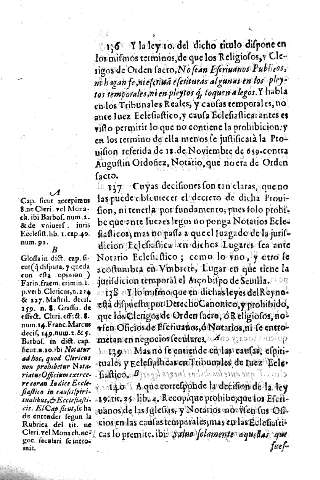 136 Y la ley 10. del dicho titulo dispone en
los mismos terminos, de que los Religiosos, y Cle-
rigos de Orden sacro, No sean Escrivanos Publicos,
ni hagan fe, ni escrivã escrituras algunas en los pley-
tos temporales, ni en pleytos q̃ toquen a legos. Y habla
en los Tribunales Reales, y causas temporales, no
ante Iuez Eclesiastico, y causa Eclesiastica: antes es
visto permitir lo que no contiene la prohibicion; y
en los termino de ella menos se justificarà la Pro-
vision referida de 12. de Noviembre de 659. contra
Augustin Ordoñez, Notario, que no era de Orden
sacro.
137 Cuyas decisiones son tan claras, que no
las puede obscurecer el decreto de dicha Provi-
sion, ni tenerla por fundamento, pues solo prohi-
be que ante Iuezes legos no ponga Notarios Eclesi-
asticos, mas no passa a que el Iuzgado de la jurisdi-
cion Eclesiastica en dichos Lugares sea ante
Notario Eclesiastico; como lo vno, y otro se
acostumbra en Vmbrete, Lugar en que tiene la
jurisdicion temporal el Arçobispo de Sevilla.
138 Y lo mismo que en dichas leyes del Reyno
està dispuesto por Derecho Canonico, y prohibido,
que los Clerigos de Orden sacro, ò Religiosos, no v-
sen Oficios de Escrivanos, ò Notarios, ni se entro-
metan en negocios seculares.
139 Mas no se contiene en las causas, espiri-
tuales, y Eclesiasticas en Tribunales de Iuez Ecle-
siastico.
140 A que corresponde la decision de la ley
19. tit. 25. lib. 4. Recop. que prohibe, que los Escri-
vanos de las Iglesias, y Notarios no vsen sus Ofi-
cios en las causas temporales, mas en las Eclesiasti-
cas lo premite. ibi: salvo solamente aquellas que
fues-
A
Cap. sicut te
Barbos. num. 1.
Ecclesiast. lib. 1. cap. 40.
num. 92.
B
Glossa in dict. cap. si-
cut (q̃ disputa, y queda
con esta opinion)
Farin. fragm. crimin. 1.
p. verb. Clericus, n. 214
& 227. Mastril. decis.
159. n. 8. Grassis de
effect. Cler. effect. 8.
num. 14. Franc. Marcus
decis. 149. num. 1. & 5.
Barbos. in dict. cap.
sicut n. 10. ibi: Notan-
dum, quod Clericos
non prohibetur Nota-
riatus Officium exerce-
re coram Iudice Eccle-
siastico in causis spiri-
tualibus, & Ecclesiasti-
cis. El Cap sicut, se ha
de entender segun la
Rubrica del tit. ne
Cler. vel Monach. ne-
goc. seculari se intro-
mit.